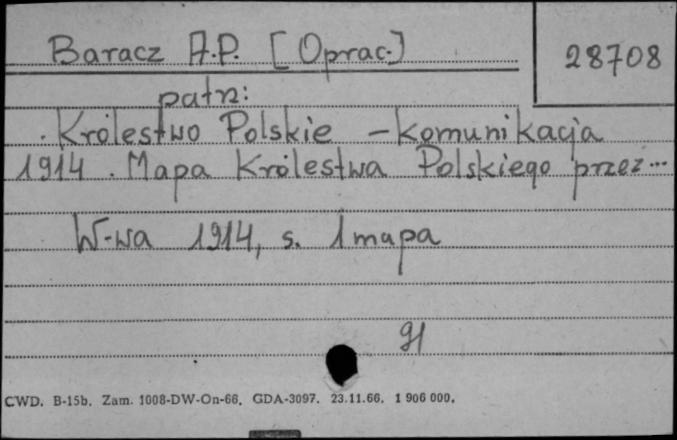 Baracz A.P. [Oprac.]
28708
patrz:
Królestwo Polskie - Komunikacja
1914. Mapa Królestwa Polskiego przez...
W-wa 1914, s. 1 mapa
91
CWD. B-15b. Zam. 1008-DW-On-66. GDA-3097. 23.11.66. 1 906 000.